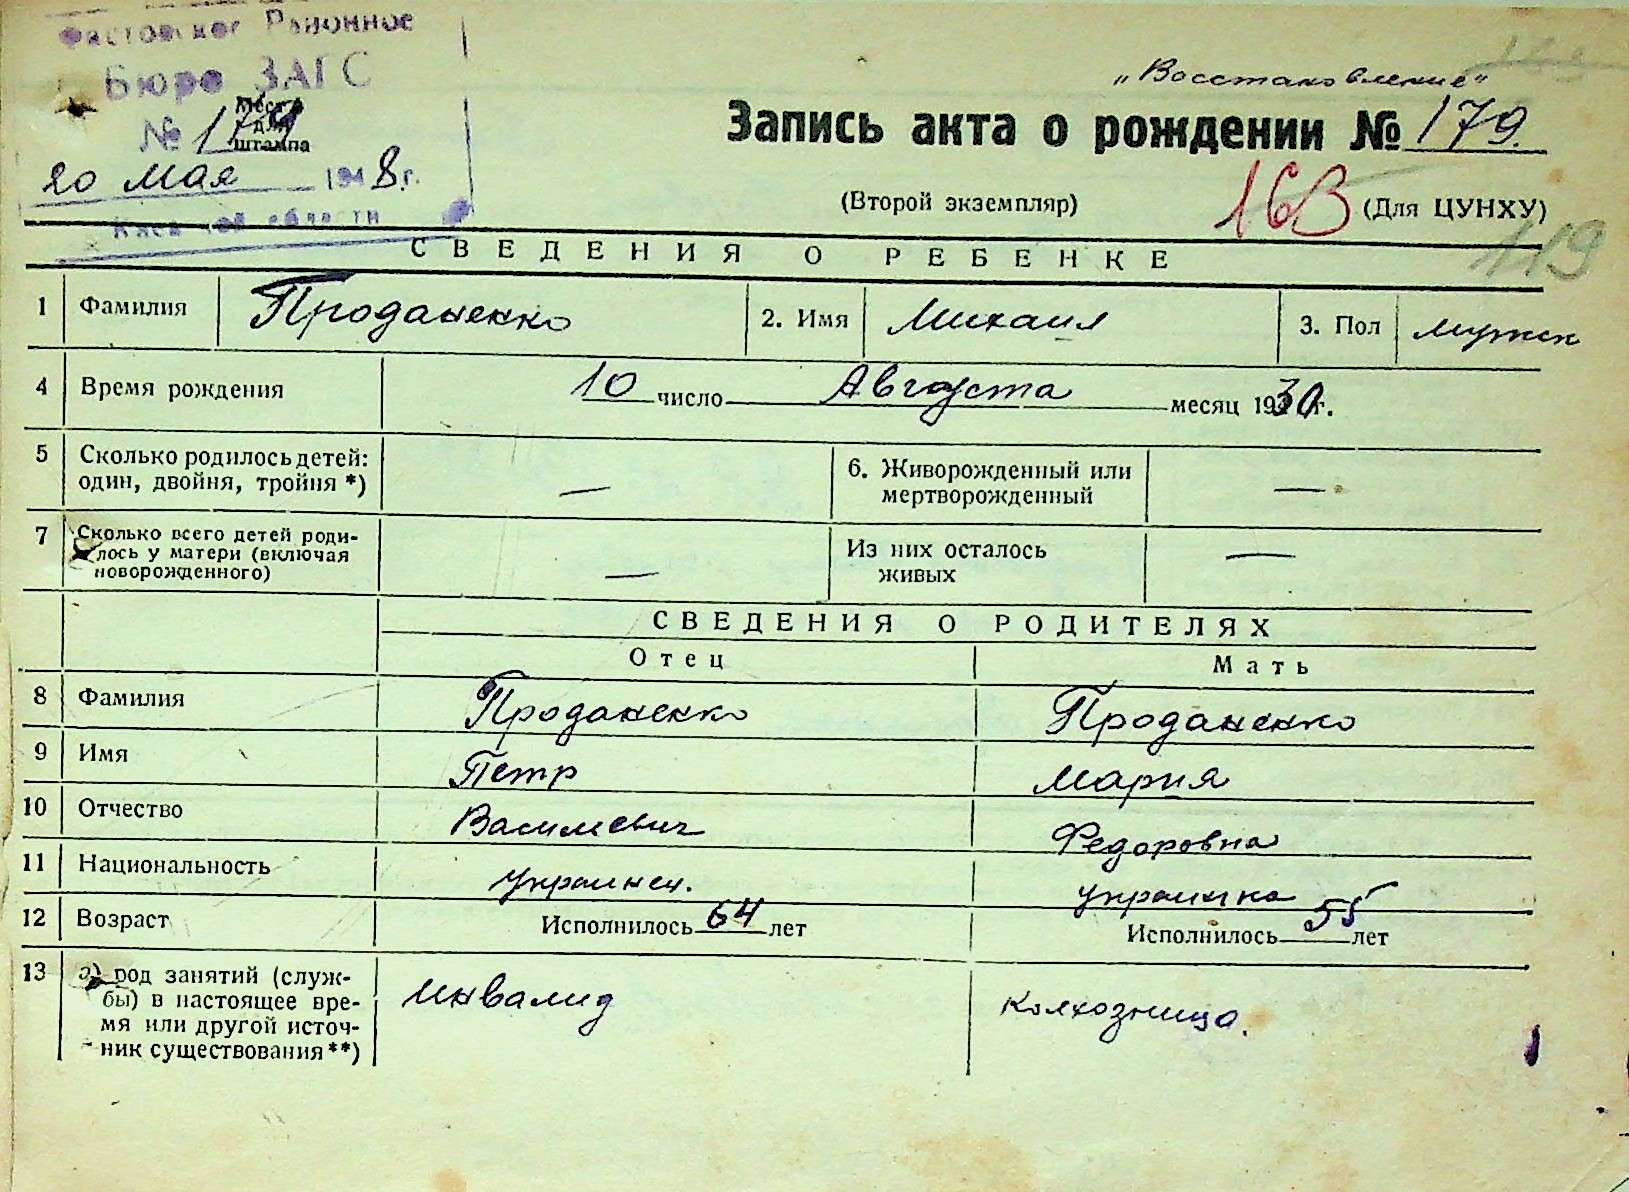 Фастовское Районное
Бюро ЗАГС
Место
для
штампа
№ 179
20 мая 1948 г.
Киевской области
"Восстановление"
Запись акта о рождении № 179.
(Второй экземпляр)
163 (Для ЦУНХУ)
119
СВЕДЕНИЯ О РЕБЕНКЕ
1 Фамилия Проданенко 2. Имя Михаил 3. Пол мужск
4 Время рождения 10 число Августа месяц 1930 г.
5 Сколько родилось детей:
один, двойня, тройня *) —
6. Живорожденный или
мертворожденный —
7 Сколько всего детей роди-
лось у матери (включая
новорожденного) —
Из них осталось
живых —
СВЕДЕНИЯ О РОДИТЕЛЯХ
Отец Мать
8 Фамилия Проданенко Проданенко
9 Имя Петр Мария
10 Отчество Васильевич Федоровна
11 Национальность украинец. украинка
12 Возраст Исполнилось 64 лет Исполнилось 55 лет
13 а) род занятий (служ-
бы) в настоящее вре-
мя или другой источ-
ник существования **)
инвалид колхозница.